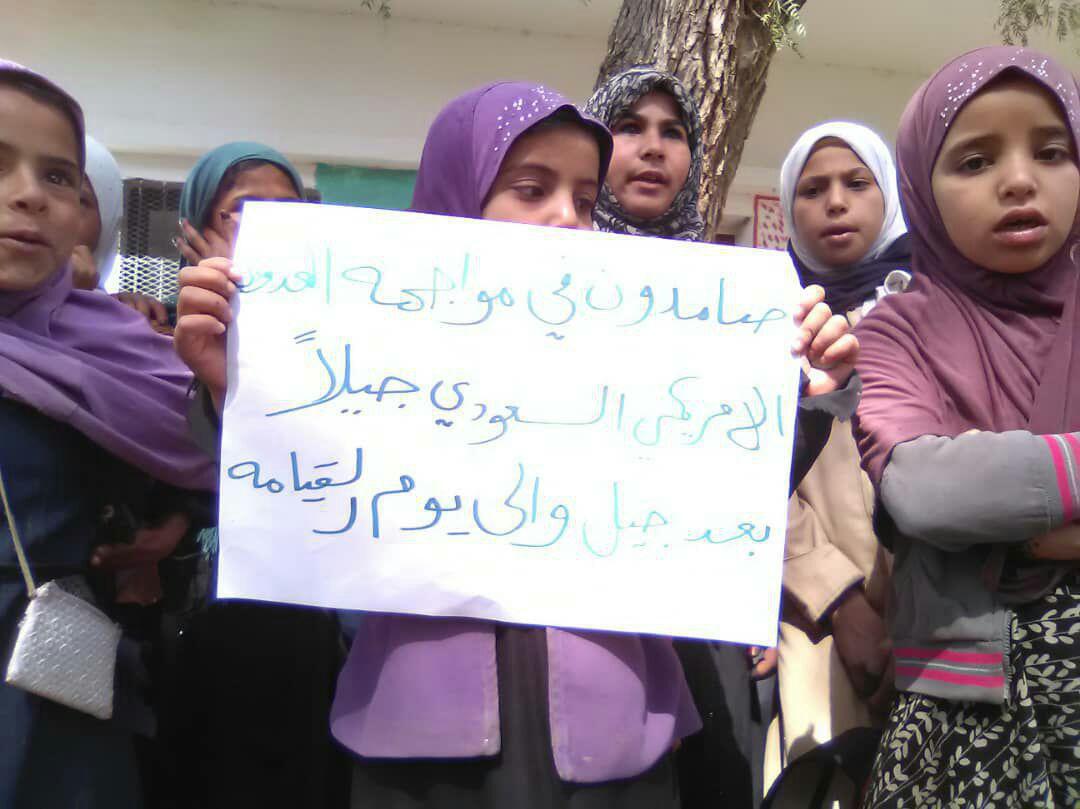 صامدون في مواجهة العدوان
الامريكي السعودي جيلاً
بعد جيل والى يوم القيامه